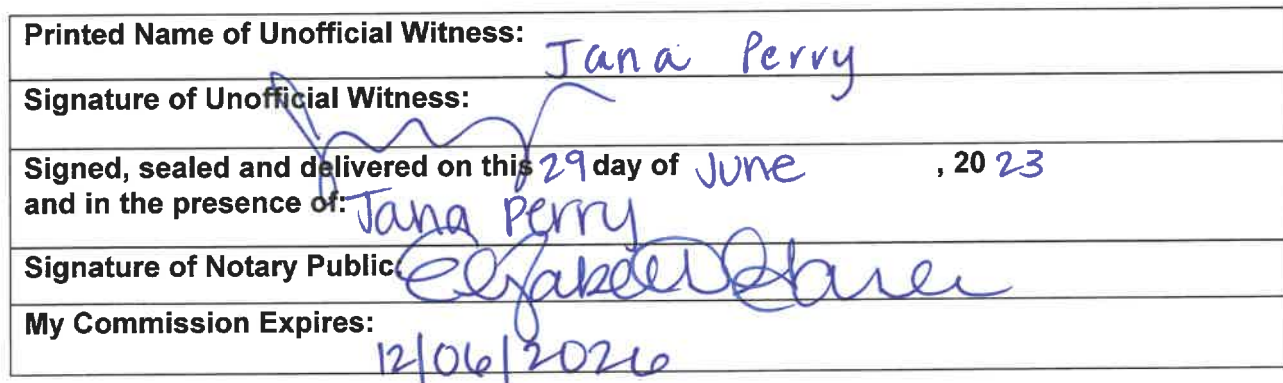 Printed Name of Unofficial Witness: Jana Perry
Signature of Unofficial Witness:
Signed, sealed and delivered on this 29 day of June , 20 23
and in the presence of: Jana Perry
Signature of Notary Public: Elizabeth
My Commission Expires:
12/06/2026